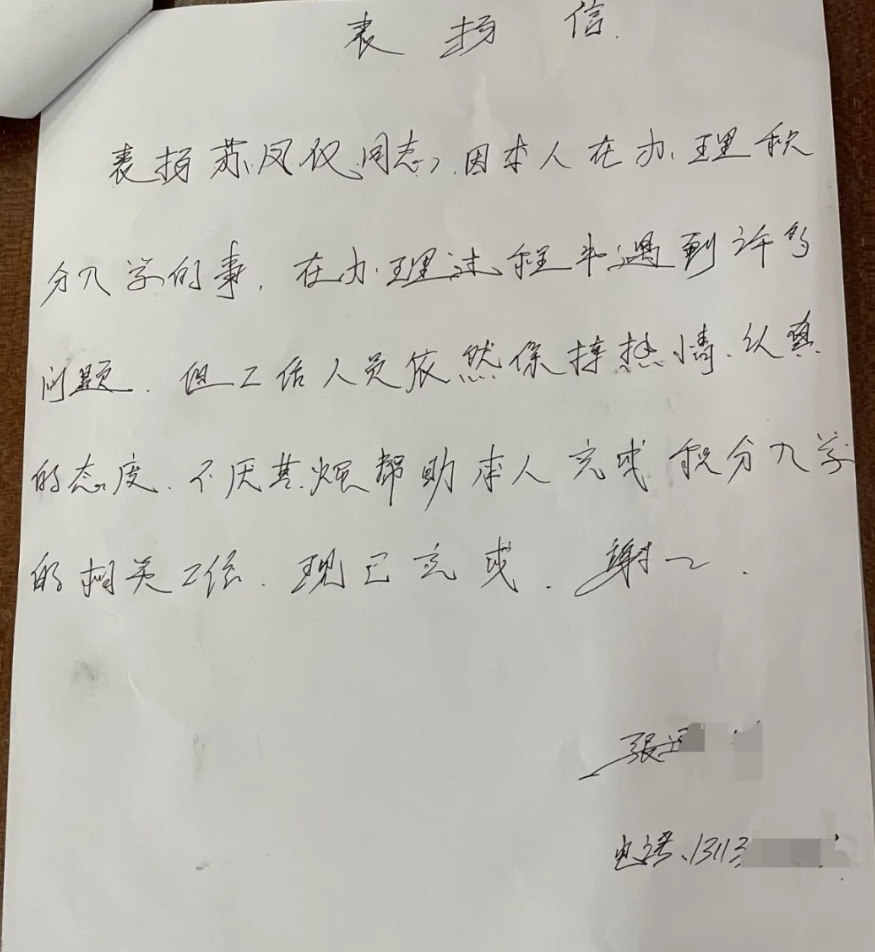 表扬信
表扬苏凤仪同志,因本人在办理积
分入学的事,在办理过程中遇到许多
问题,但工作人员依然保持热情、认真
的态度、不厌其烦帮助本人完成积分入学
的相关工作,现已完成,谢谢.
张
电话、13113